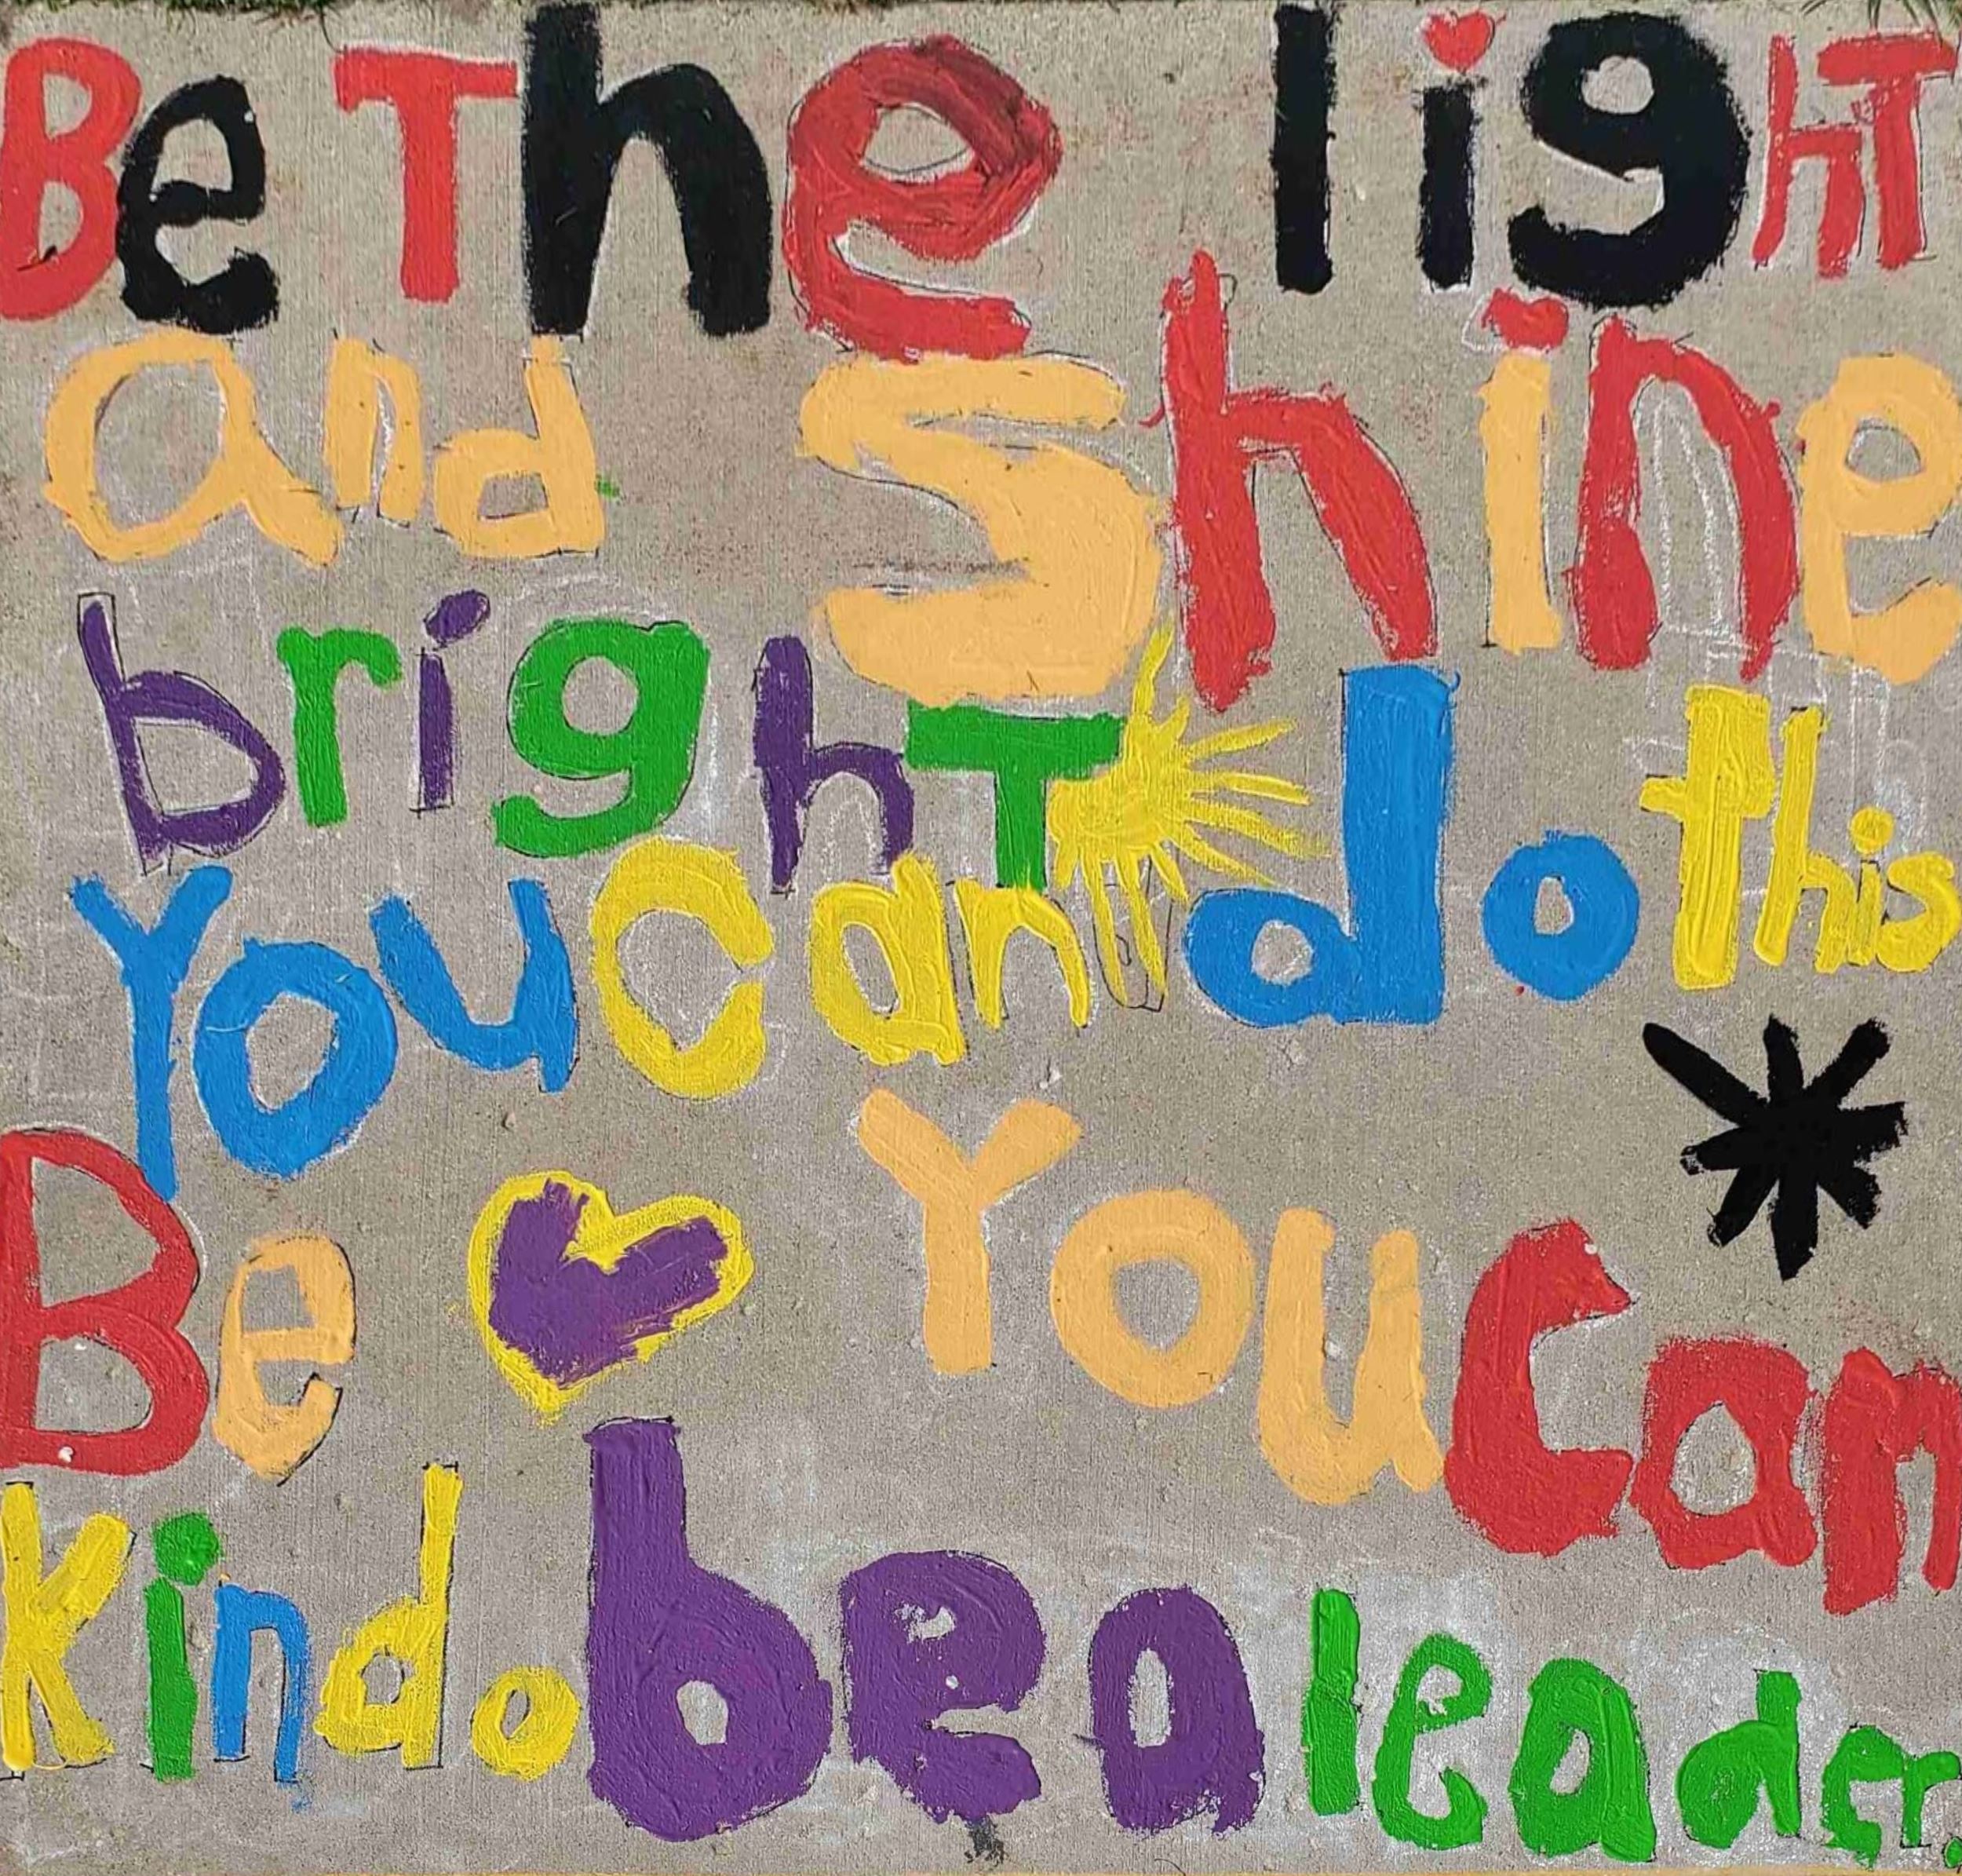 Be The lighT
and Shine
brighT
You Can do this
Be You Can
Kind. be a leader.